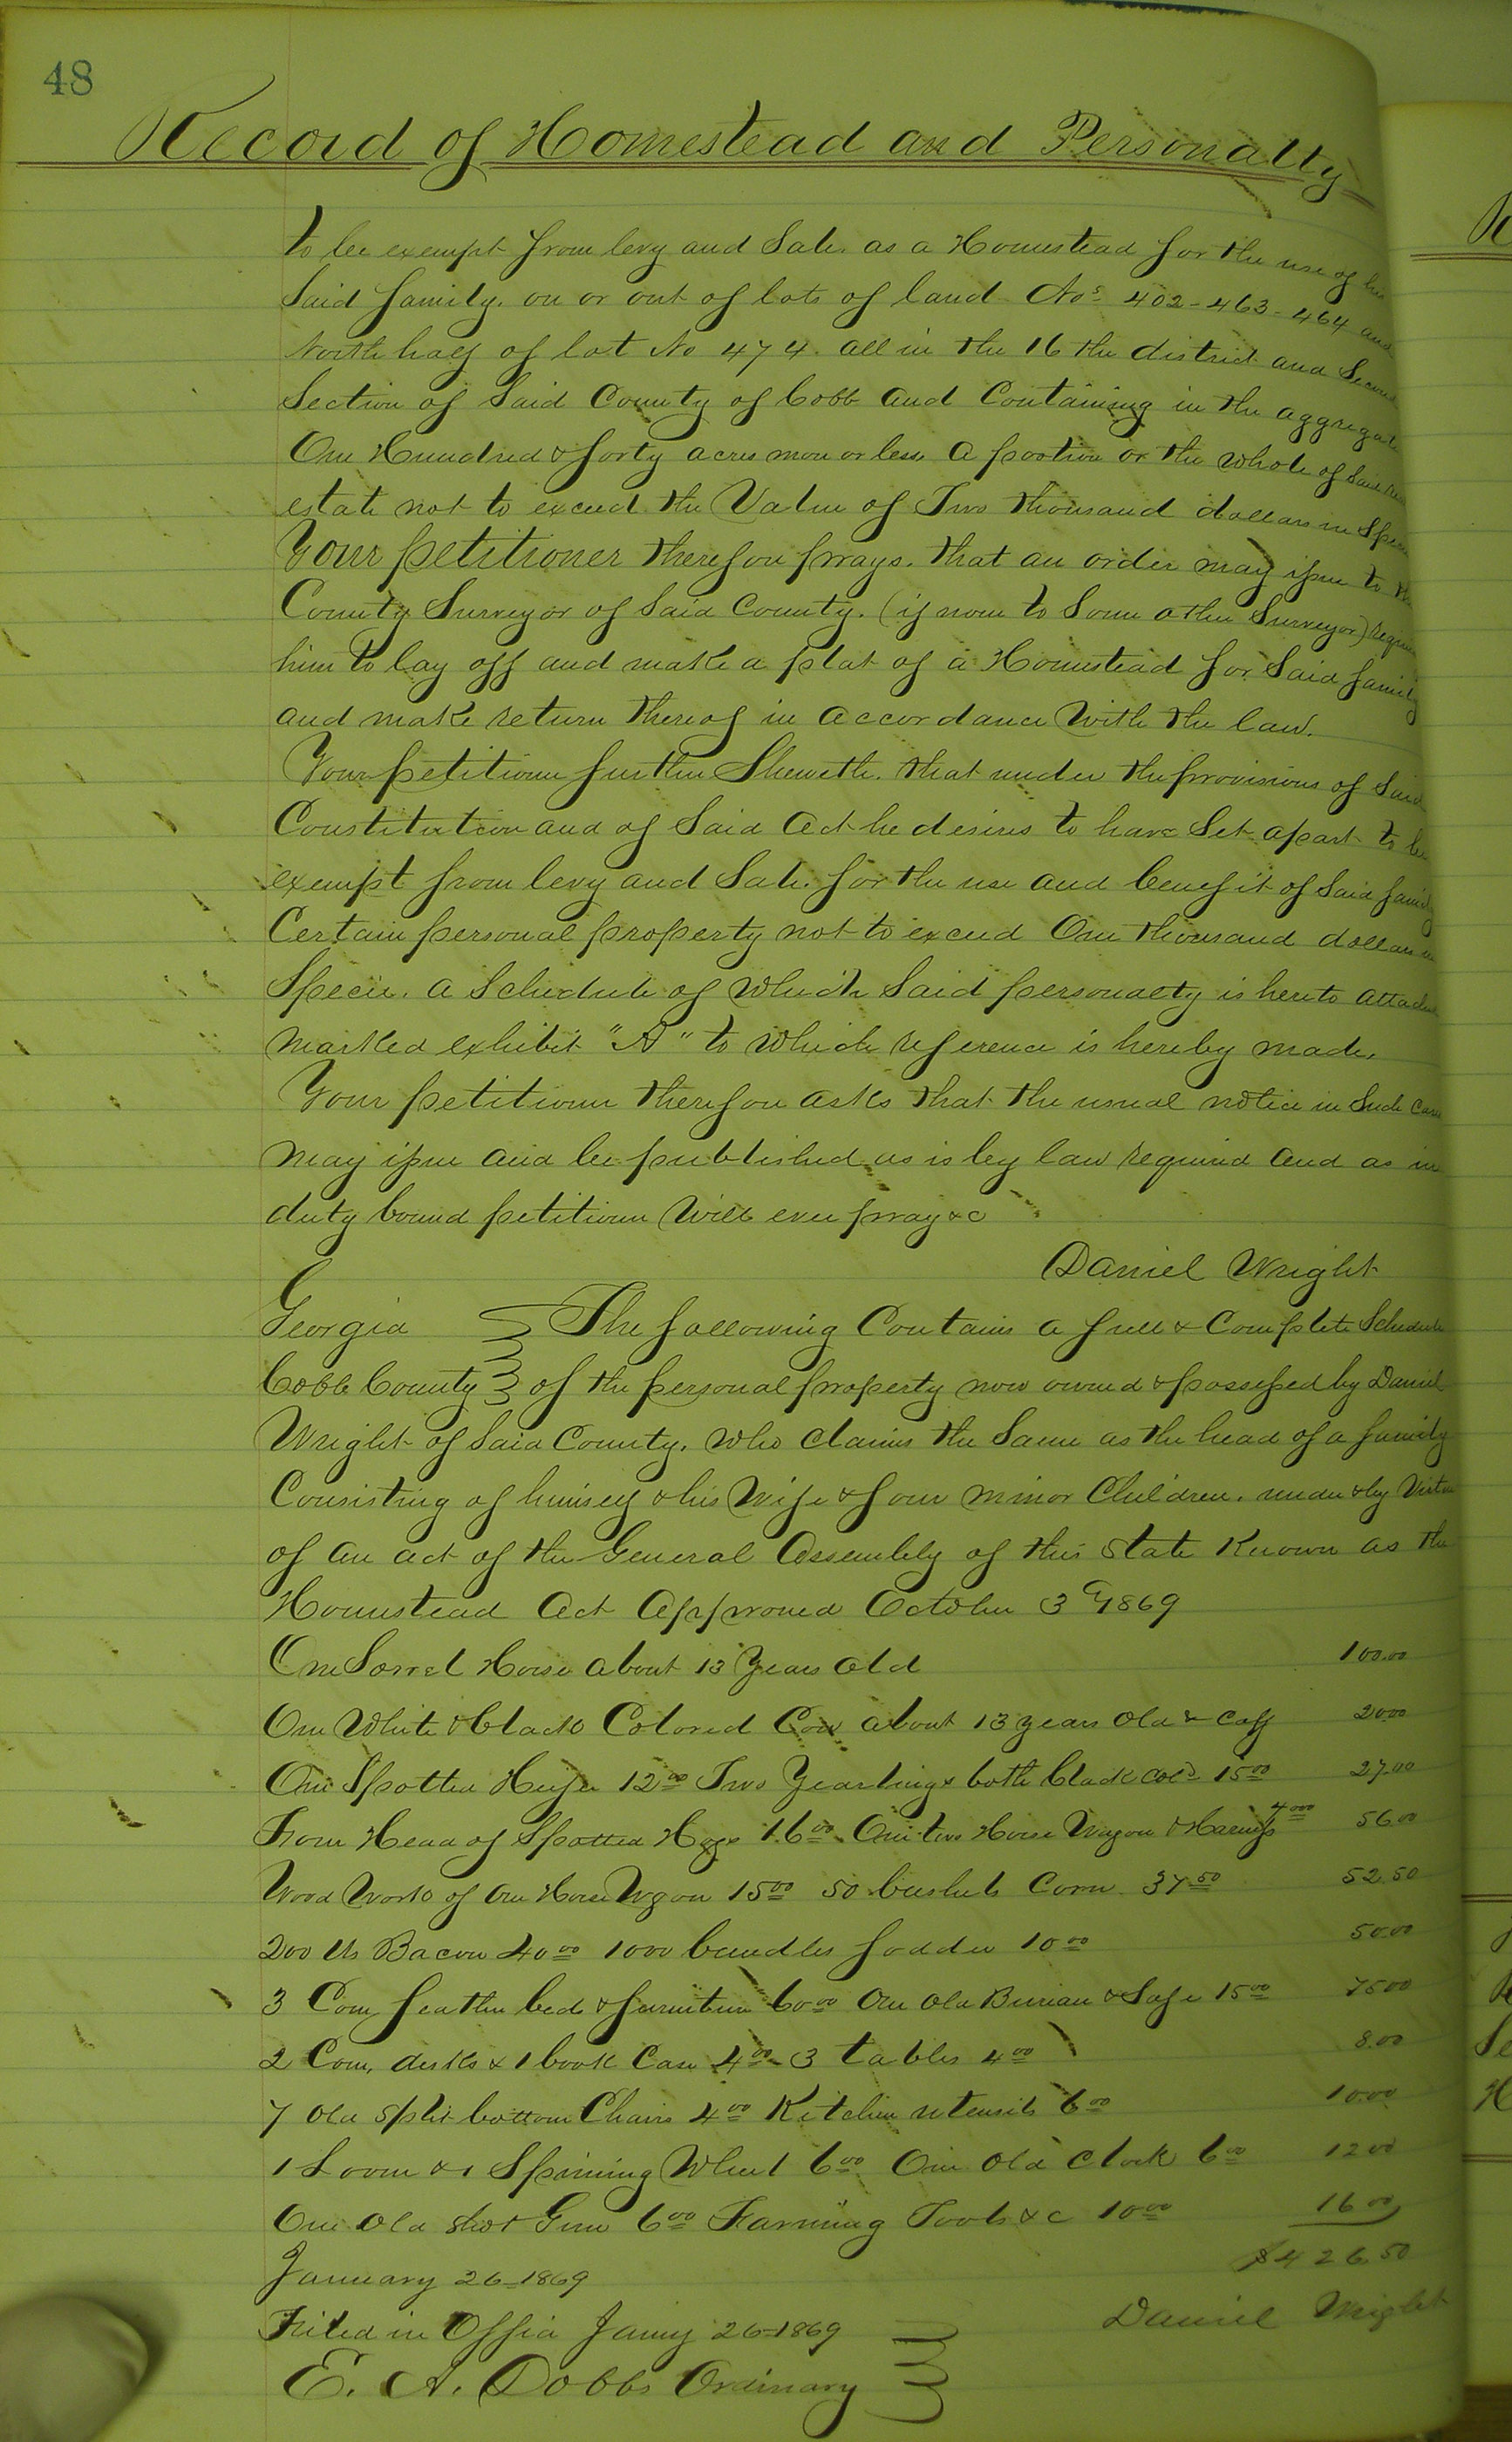 48
Record of Homestead and Personalty
to be exempt from levy and Sale. as a Homestead for the use of his
Said family. on or out of lots of land Nos 402-463-464 and
North half of lot No 474. all in the 16 the district and Second
Section of Said County of Cobb and Containing in the aggregate
One Hundred & forty acres more or less a portion or the whole of Said real
estate not to exceed the Value of Two thousand dollars in Specie
Your petitioner therefore prays. that an order may issue to the
County Surveyor of Said County. (if none to Some other Surveyor) requiring
him to lay off and make a plat of a Homestead for Said family
and make return thereof in accordance With the law.
Your petitioner further Sheweth. that under the provisions of Said
Constitution and of Said Act he desires to have Set apart to be
exempt from levy and Sale. for the use and benefit of Said family
Certain personal property not to exceed One thousand dollars in
Specie. a Schedule of which Said personalty is hereto attached
marked exhibit "A" to which reference is hereby made.
Your petitioner therefore asks that the usual notice in Such case
may issue and be published as is by law required and as in
duty bound petitioner Will ever pray &c
Daniel Wright
Georgia The following Contains a full & Complete Schedule
Cobb County of the personal property now owned & possessed by Daniel
Wright of Said County. who claims the Same as the head of a family
Consisting of himself & his Wife & four minor Children. under & by Virtue
of an act of the General Assembly of this State Known as the
Homestead Act Approved October 3d 1869
One Sorrel Horse about 13 Years old 100.00
One White & black Colored Cow about 13 years old & calf 20.00
One Spotted Heifer 12.00 Two Yearlings both black cold 15.00 27.00
Four Head of Spotted Hogs 16.00 One two Horse Wagon & Harness 40.00 56.00
Wood Work of One Horse Wgon 15.00 50 bushels Corn 37.50 52.50
200 lbs Bacon 40.00 1000 bundles fodder 10.00 50.00
3 Com feather bed & furniture 60.00 One Old Bureau & Safe 15.00 75.00
2 Com. desks & 1 book Case 4.00 3 tables 4.00 8.00
7 Old Split bottom Chairs 4.00 Kitchen utensils 6.00 10.00
1 Loom & 1 Spinning Wheel 6.00 One Old Clock 6.00 12.00
One Old Shot Gun 6.00 Farming Tools &c 10.00 16.00
$426.50
January 26-1869
Daniel Wright
Filed in Office Jany 26-1869
E. A. Dobbs Ordinary